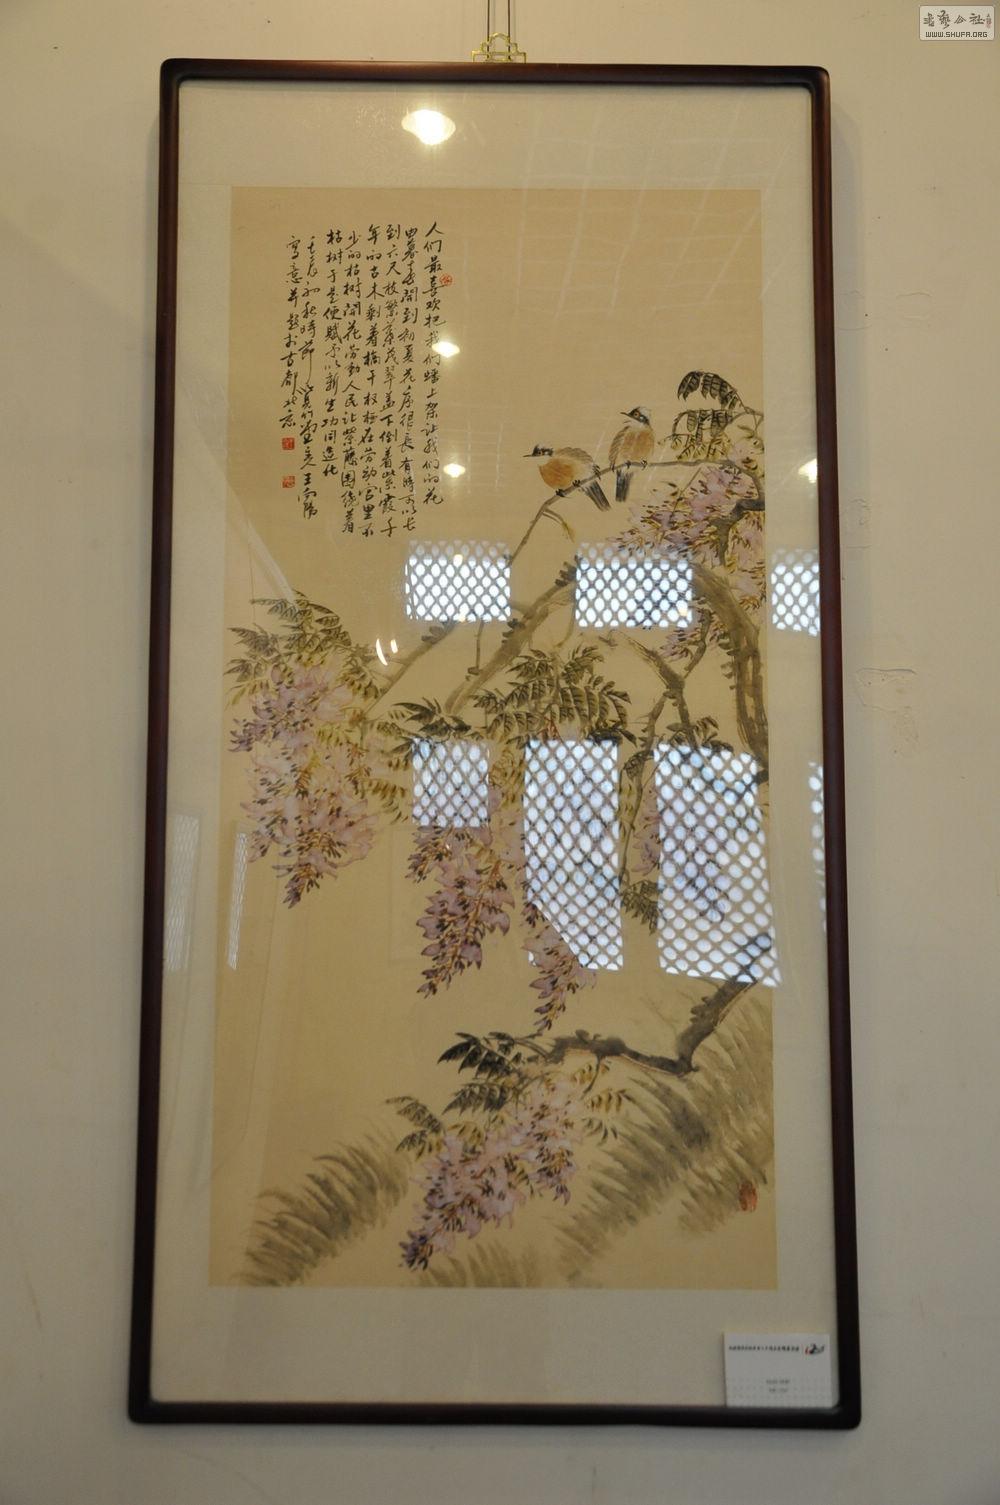 人们最喜欢把我们蟠上架让我们的花
由暮春开到初夏花序很长有时可以长
到六尺枝繁叶茂翠盖下倒着紫霞千
年的古木剩着槁干杈桠在劳动宫里不
少的枯树开花劳动人民让紫藤围绕着
枯树于是便赋予以新生功同造化
壬辰初秋时节
写意并题于古都北京
书艺公社
WWW.SHUFA.ORG